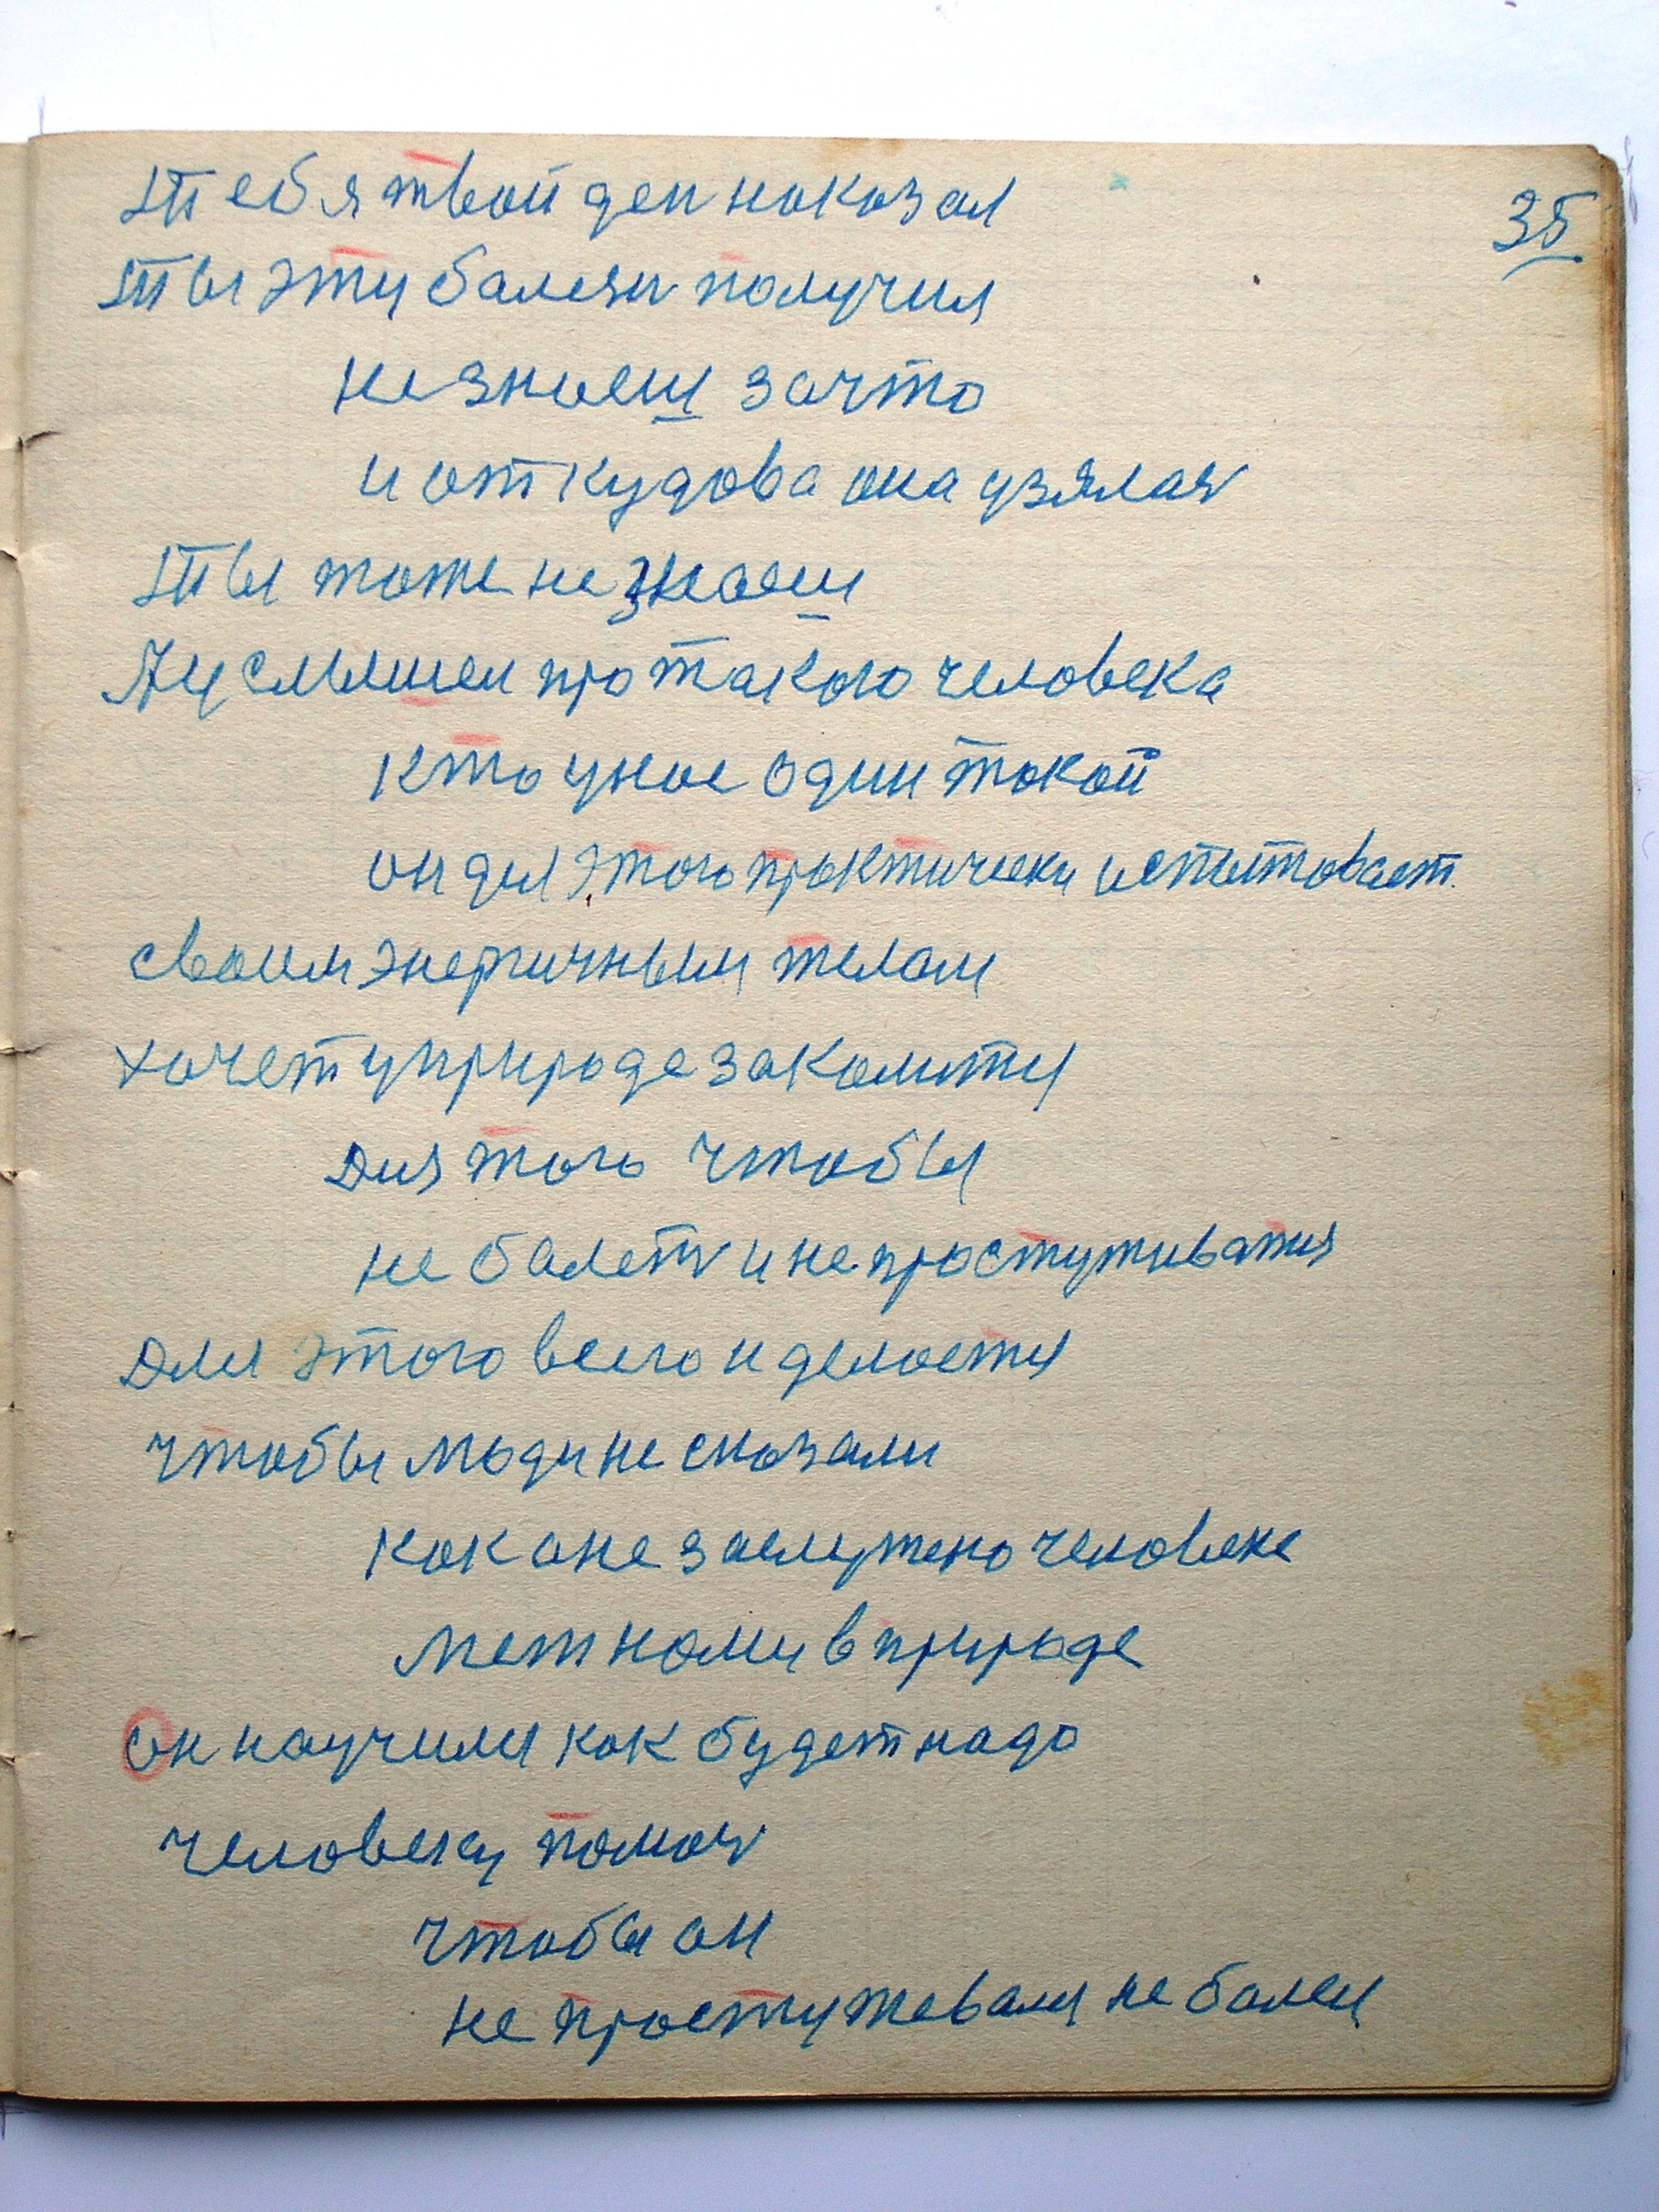 35
Тебя твой ден наказал
Ты эту балезн получил
незнаеш зачто
и откудова она узялас
Ты тоже незнаеш
Ну слышел про такого человека
кто унас один такой
он для этого практически испытовает
своим энергичным телам
хочет уприроде закалитця
Для того чтобы
не балеть и не простуживатця
Для этого всего и делаетця
чтобы люди не сказали
как а не заслужено человеке
меж нами в природе
Он научился как будет надо
человеку помоч
чтобы он
не простужевался не балел